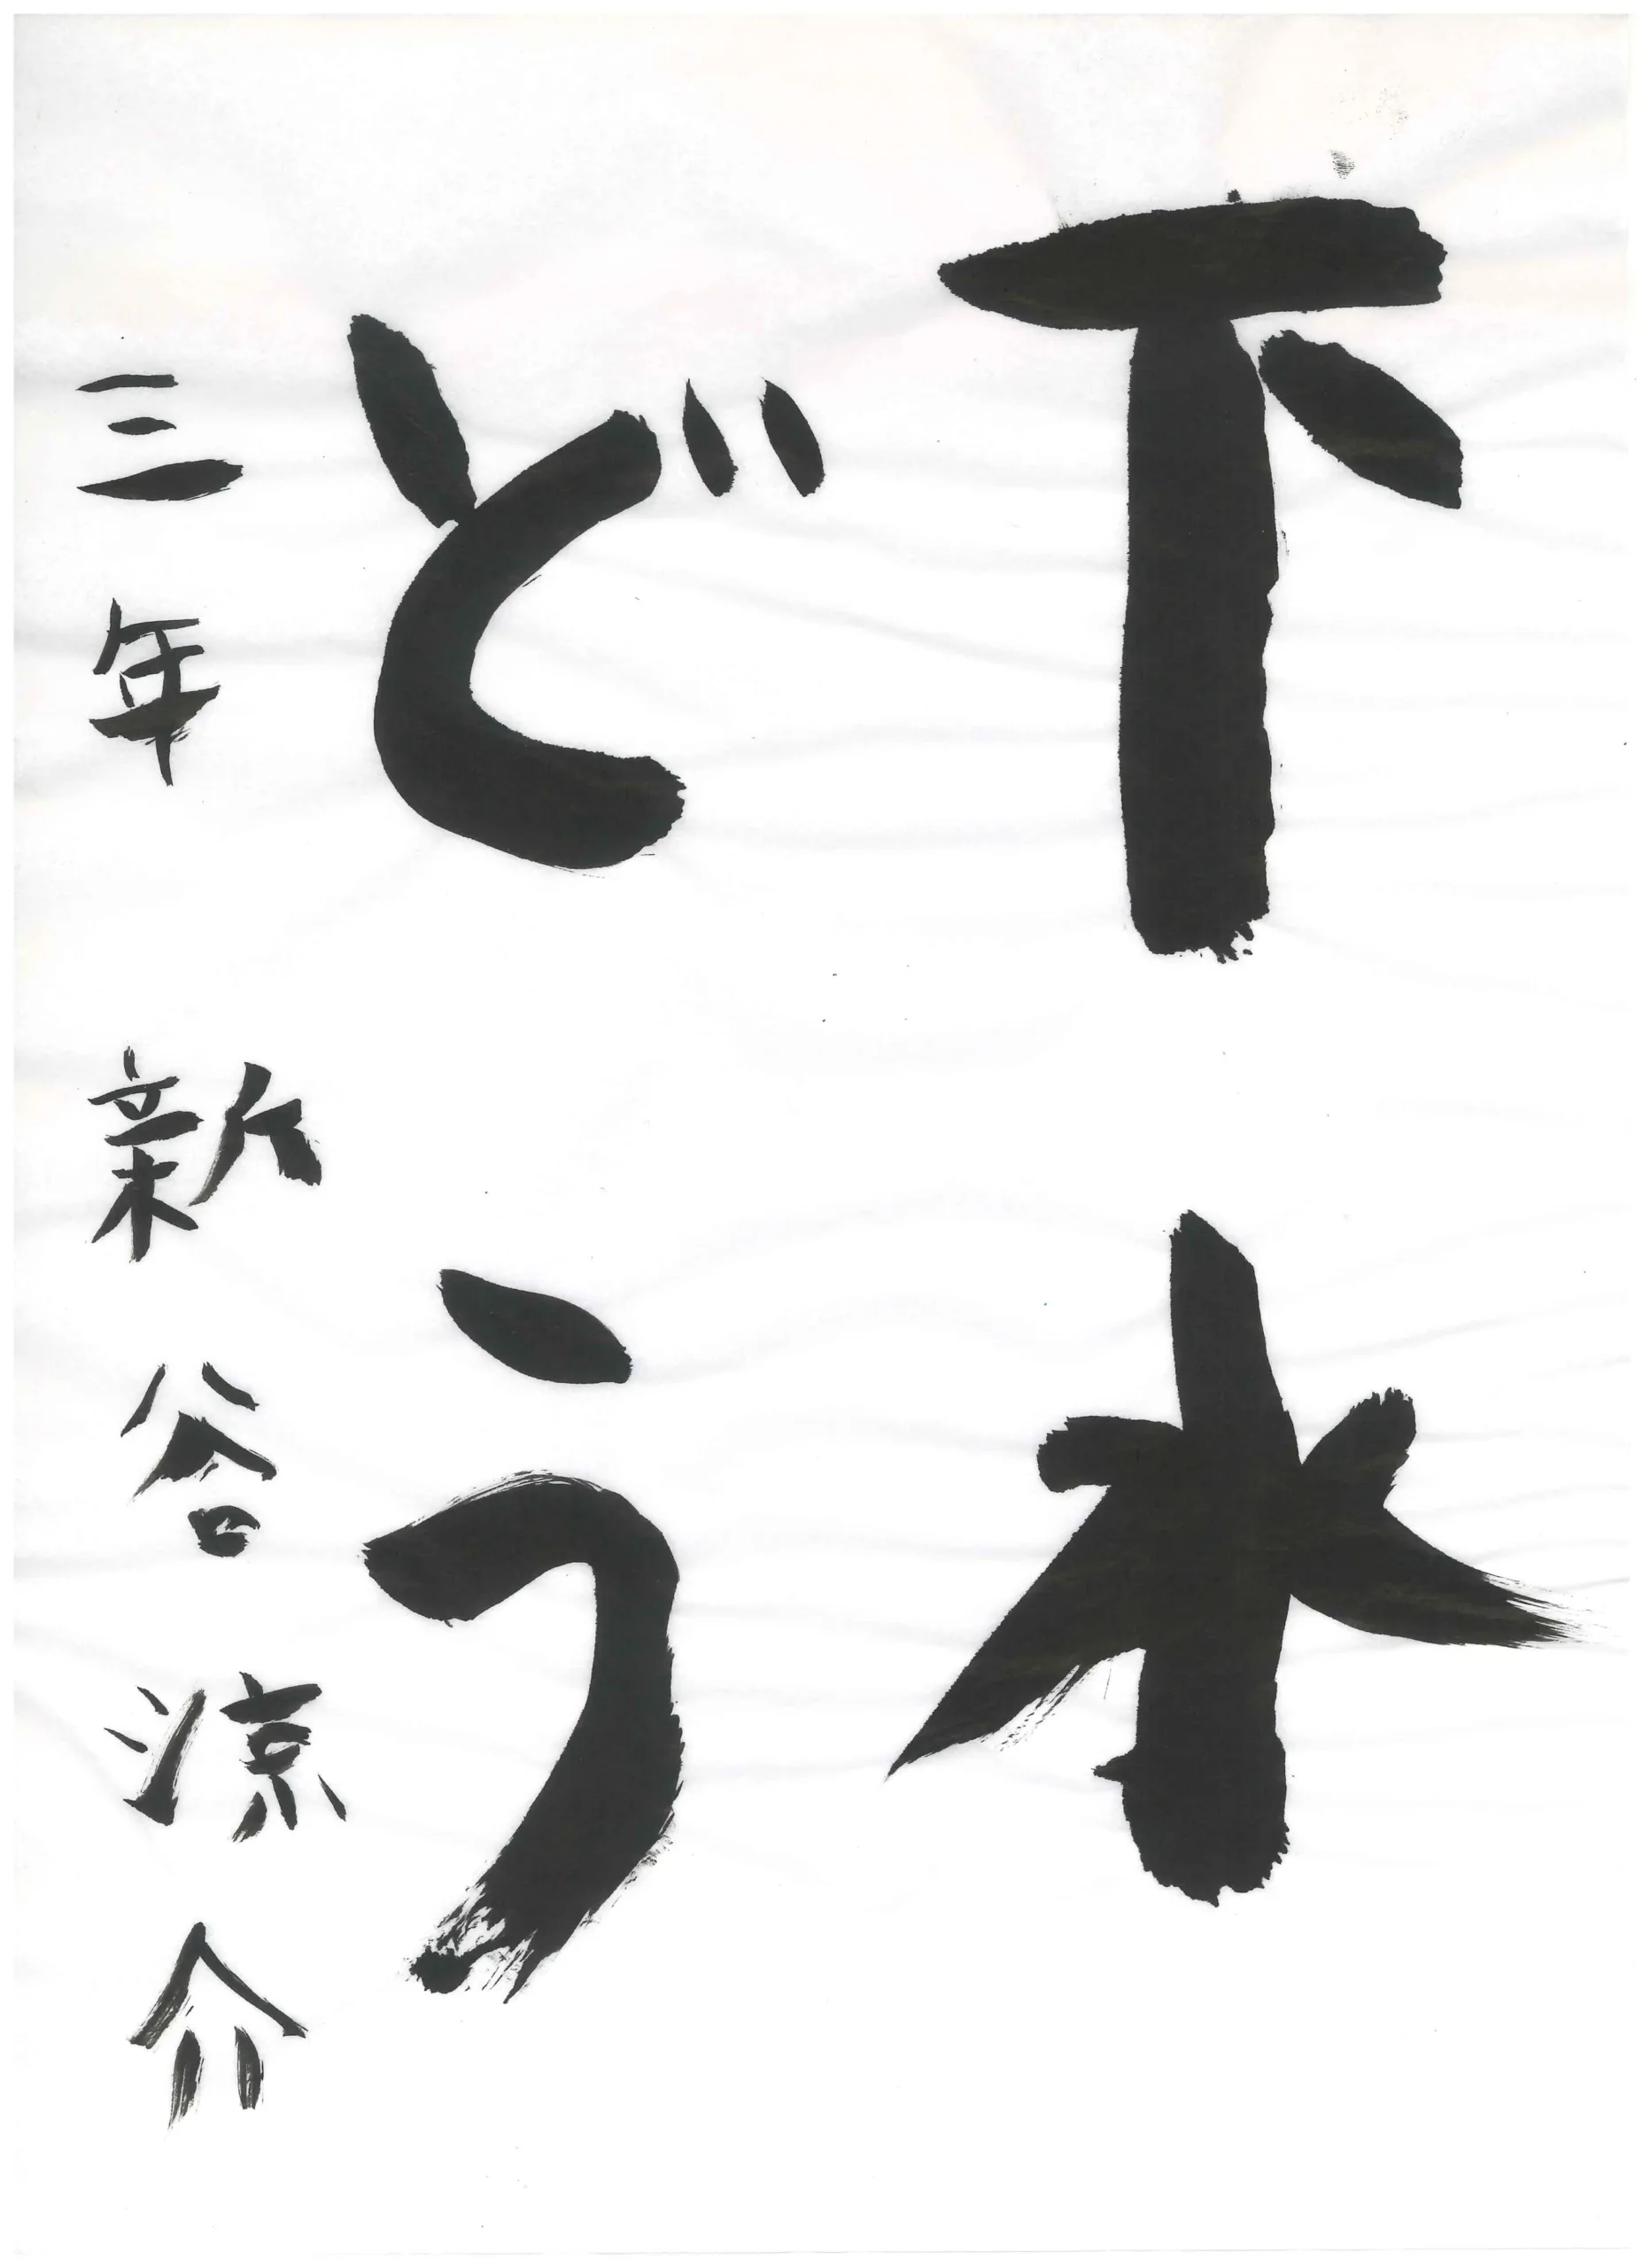 下水
どう
三年 新谷涼介